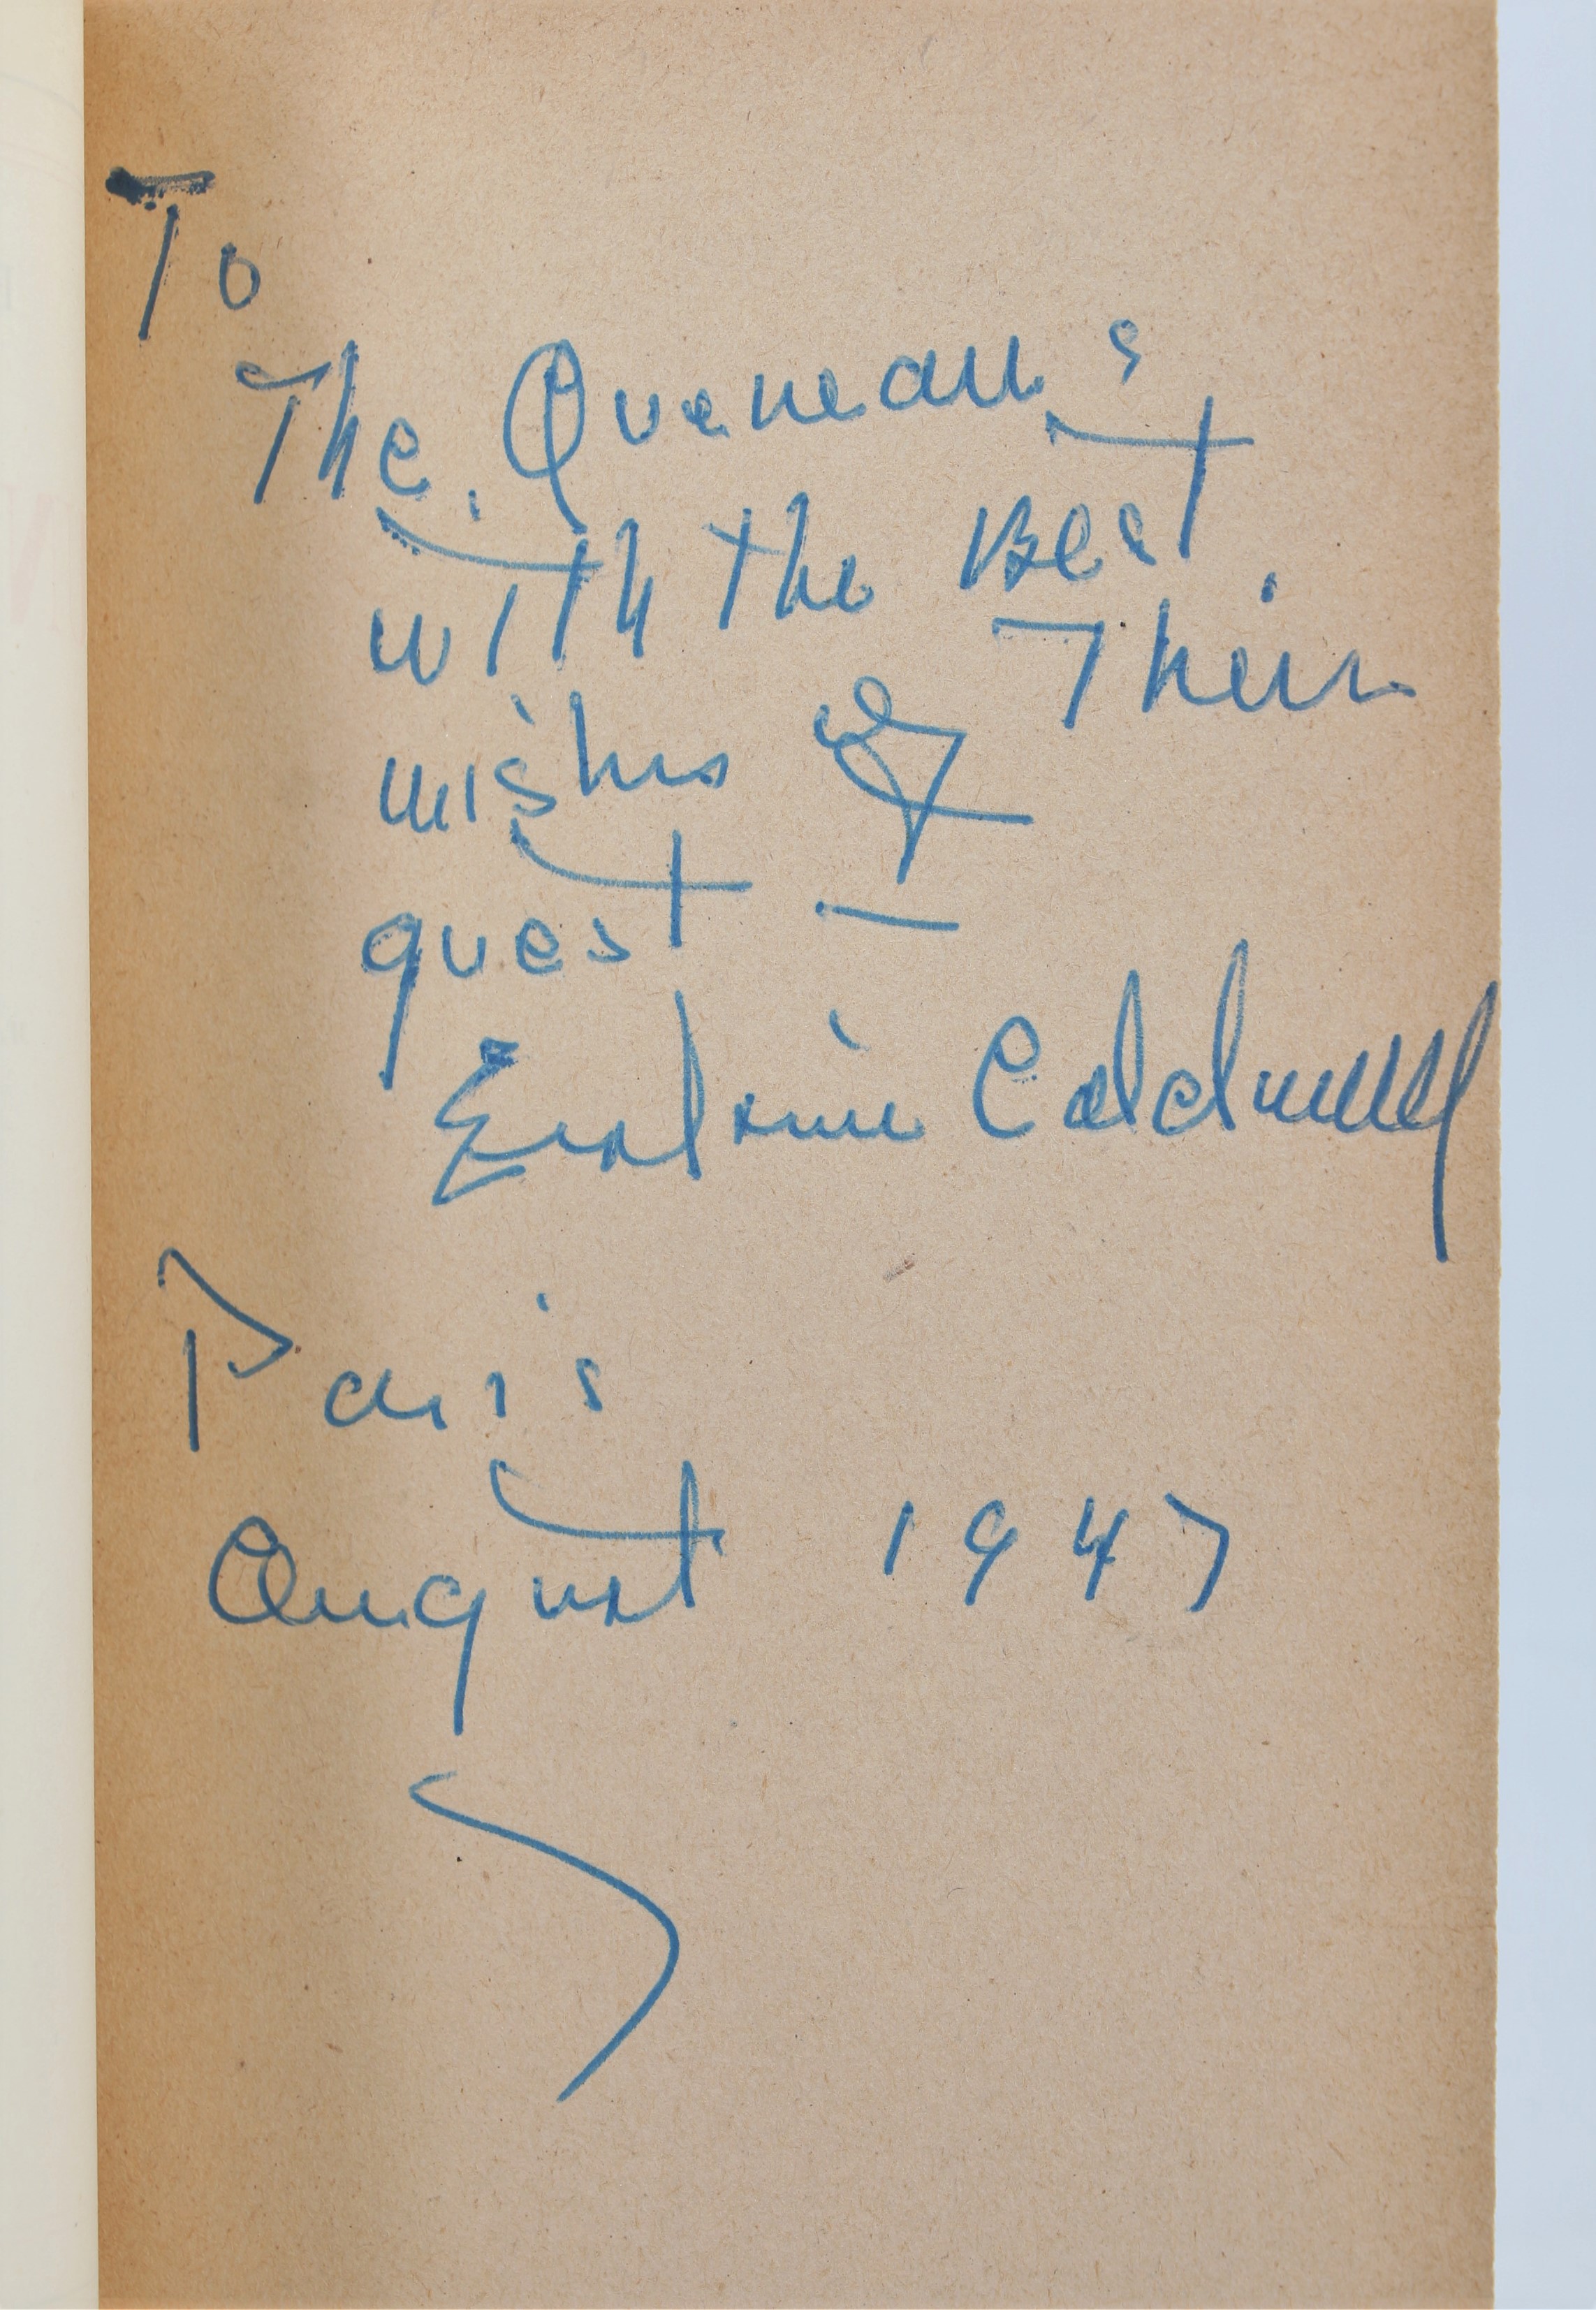 To
The Queneau's
with the Best
wishes of Their
guest —
Erskine Caldwell
Paris
August 1947